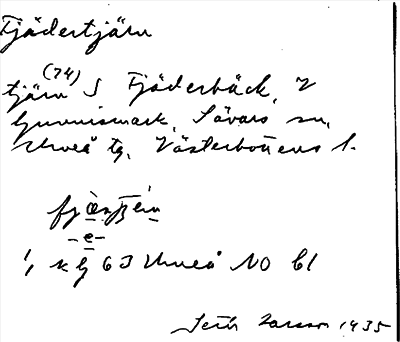 Fjädertjärn
(74)
tjärn S Fjäderbäck, V
Gunnismark, Sävars sn,
Umeå tg, Västerbottens l.
-e-
kg 63 Umeå NO bl
Seth Larsson 1935